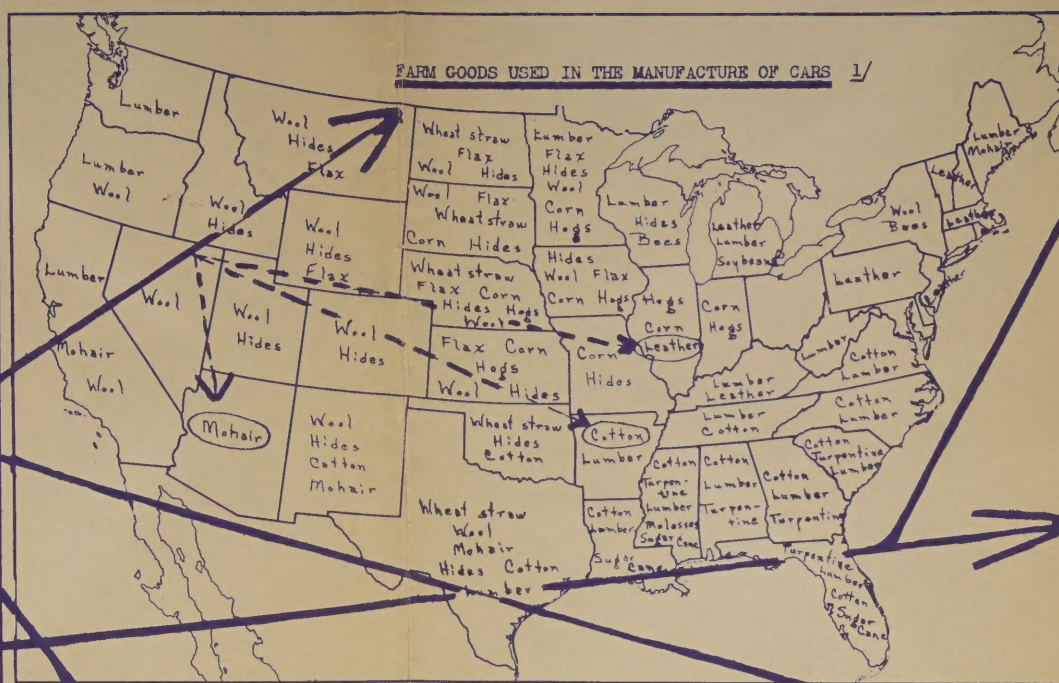 FARM GOODS USED IN THE MANUFACTURE OF CARS 1/
Lumber
Lumber
Wool
Wool
Hides
Wool
Hides
Flax
Wool
Hides
Flax
Lumber
Mohair
Wool
Wool
Wool
Hides
Wool
Hides
Mohair
Wool
Hides
Cotton
Mohair
Wheat straw
Flax
Wool Hides
Wool Flax
Wheat straw
Corn Hides
Wheat straw
Flax Corn
Hides Hogs
Wool
Flax Corn
Hogs
Wool Hides
Wheat straw
Hides
Cotton
Wheat straw
Wool
Mohair
Hides Cotton
Lumber
Lumber
Flax
Hides
Wool
Corn
Hogs
Hides
Wool Flax
Corn Hogs
Corn
Hides
Cotton
Lumber
Cotton
Lumber
Sugar Cane
Lumber
Hides
Bees
Hogs
Corn
Leather
Leather
Lumber
Soybeans
Corn
Hogs
Lumber
Leather
Lumber
Cotton
Cotton
Turpen-
tine
Lumber
Molasses
Sugar Cane
Cotton
Lumber
Turpen-
tine
Cotton
Lumber
Turpentine
Turpentine
Lumber
Cotton
Sugar
Cane
Cotton
Turpentine
Lumber
Cotton
Lumber
Cotton
Lumber
Lumber
Leather
Leather
Wool
Bees
Leather
Leather
Lumber
Mohair